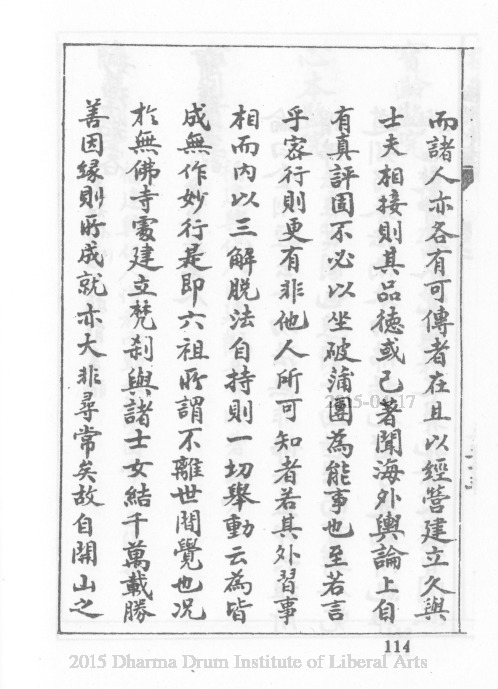 而諸人亦各有可傳者在且以經營建立久與
士夫相接則其品德或已著聞海外輿論上自
有真評固不必以坐破蒲團為能事也至若言
乎密行則更有非他人所可知者若其外習事
相而內以三解脱法自持則一切舉動云為皆
成無作妙行是即六祖所謂不離世間覺也况
於無佛寺處建立梵剎與諸士女結千萬載勝
善因緣則所成就亦大非尋常矣故自開山之
114
2015 Dharma Drum Institute of Liberal Arts